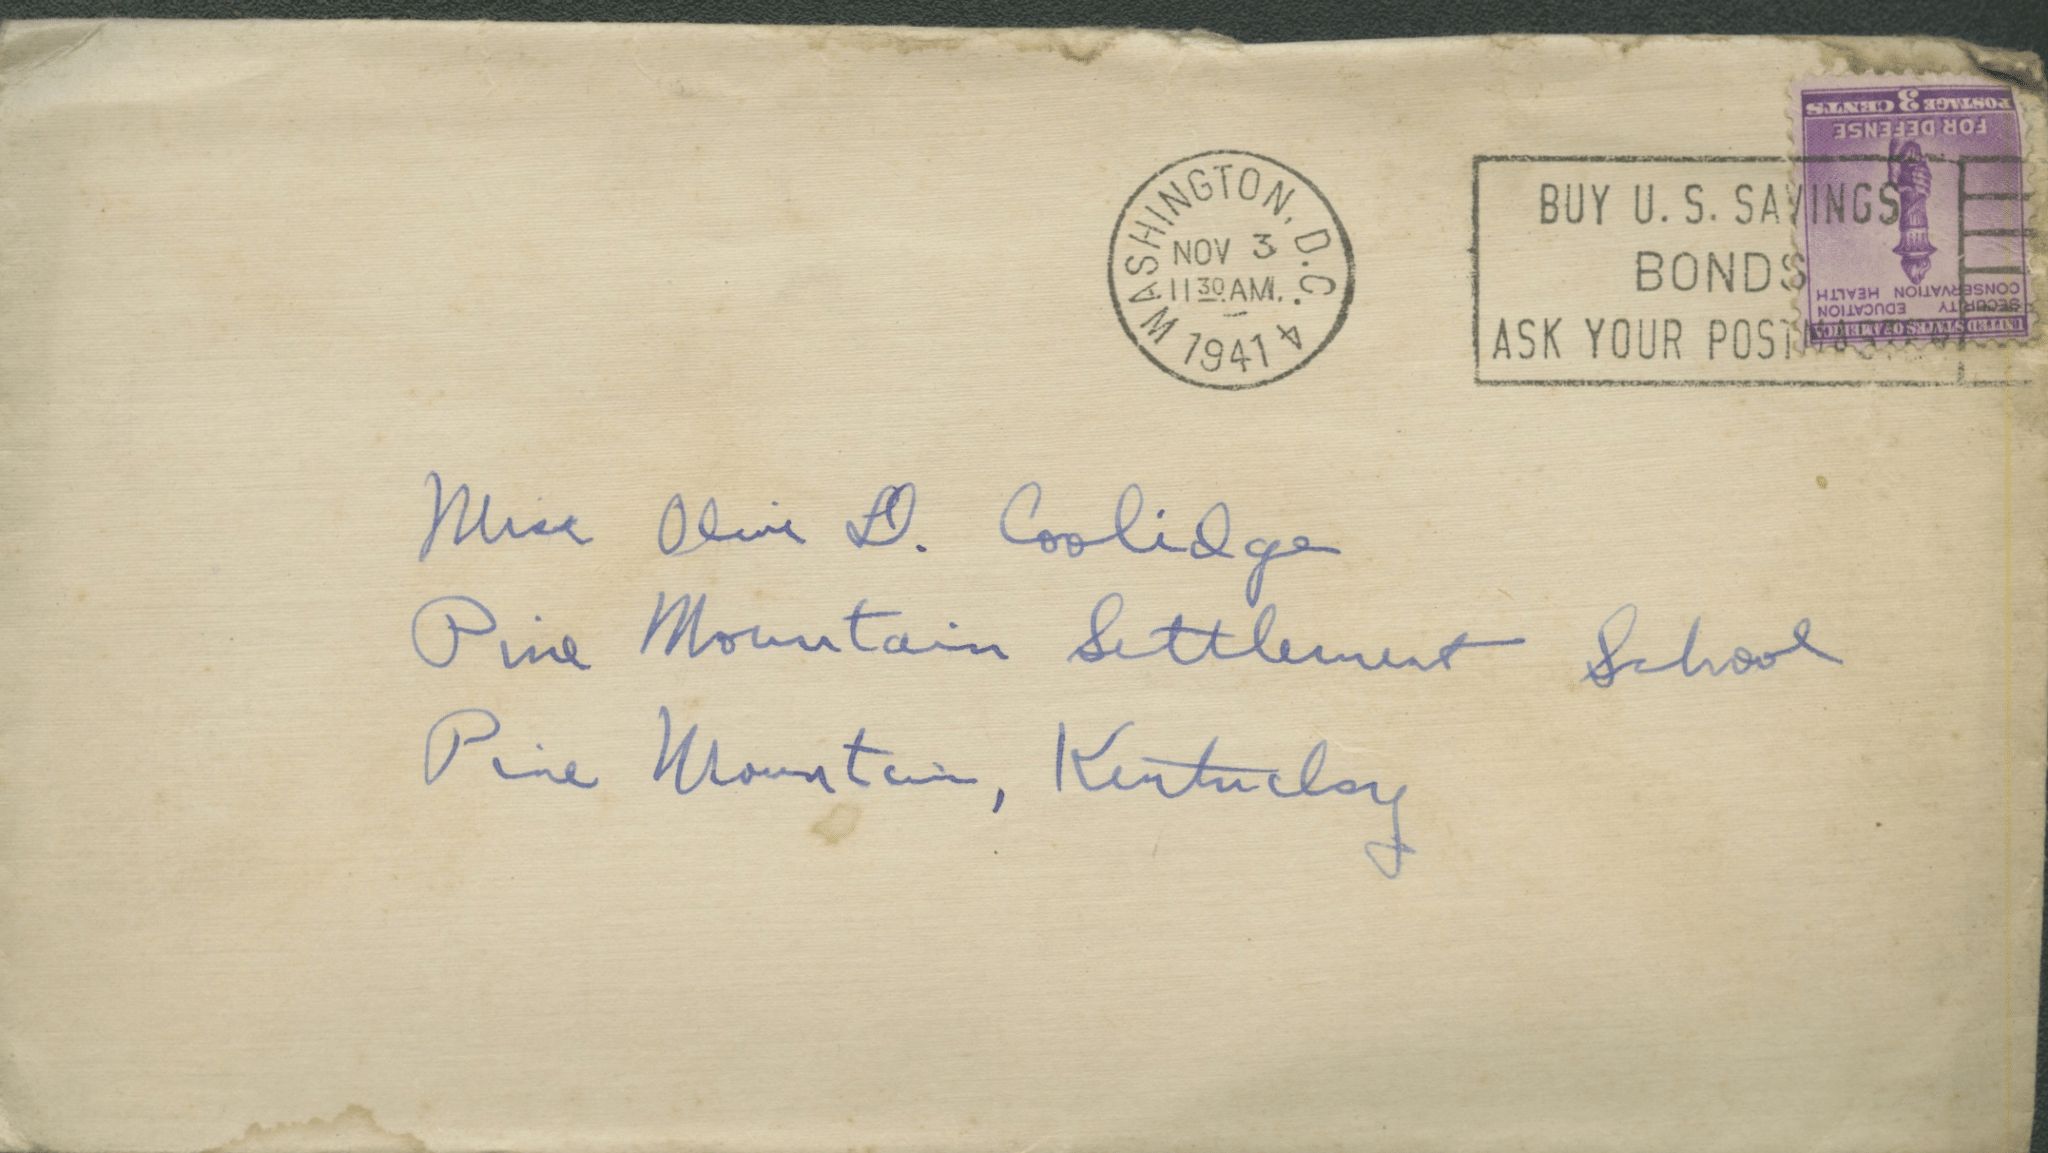 WASHINGTON, D.C. 4
NOV 3
11 30 AM.
1941
BUY U. S. SAVINGS
BONDS
ASK YOUR POSTMASTER
POSTAGE 3 CENTS
FOR DEFENSE
SECURITY EDUCATION
CONSERVATION HEALTH
UNITED STATES OF AMERICA
Miss Olive D. Coolidge
Pine Mountain Settlement School
Pine Mountain, Kentucky